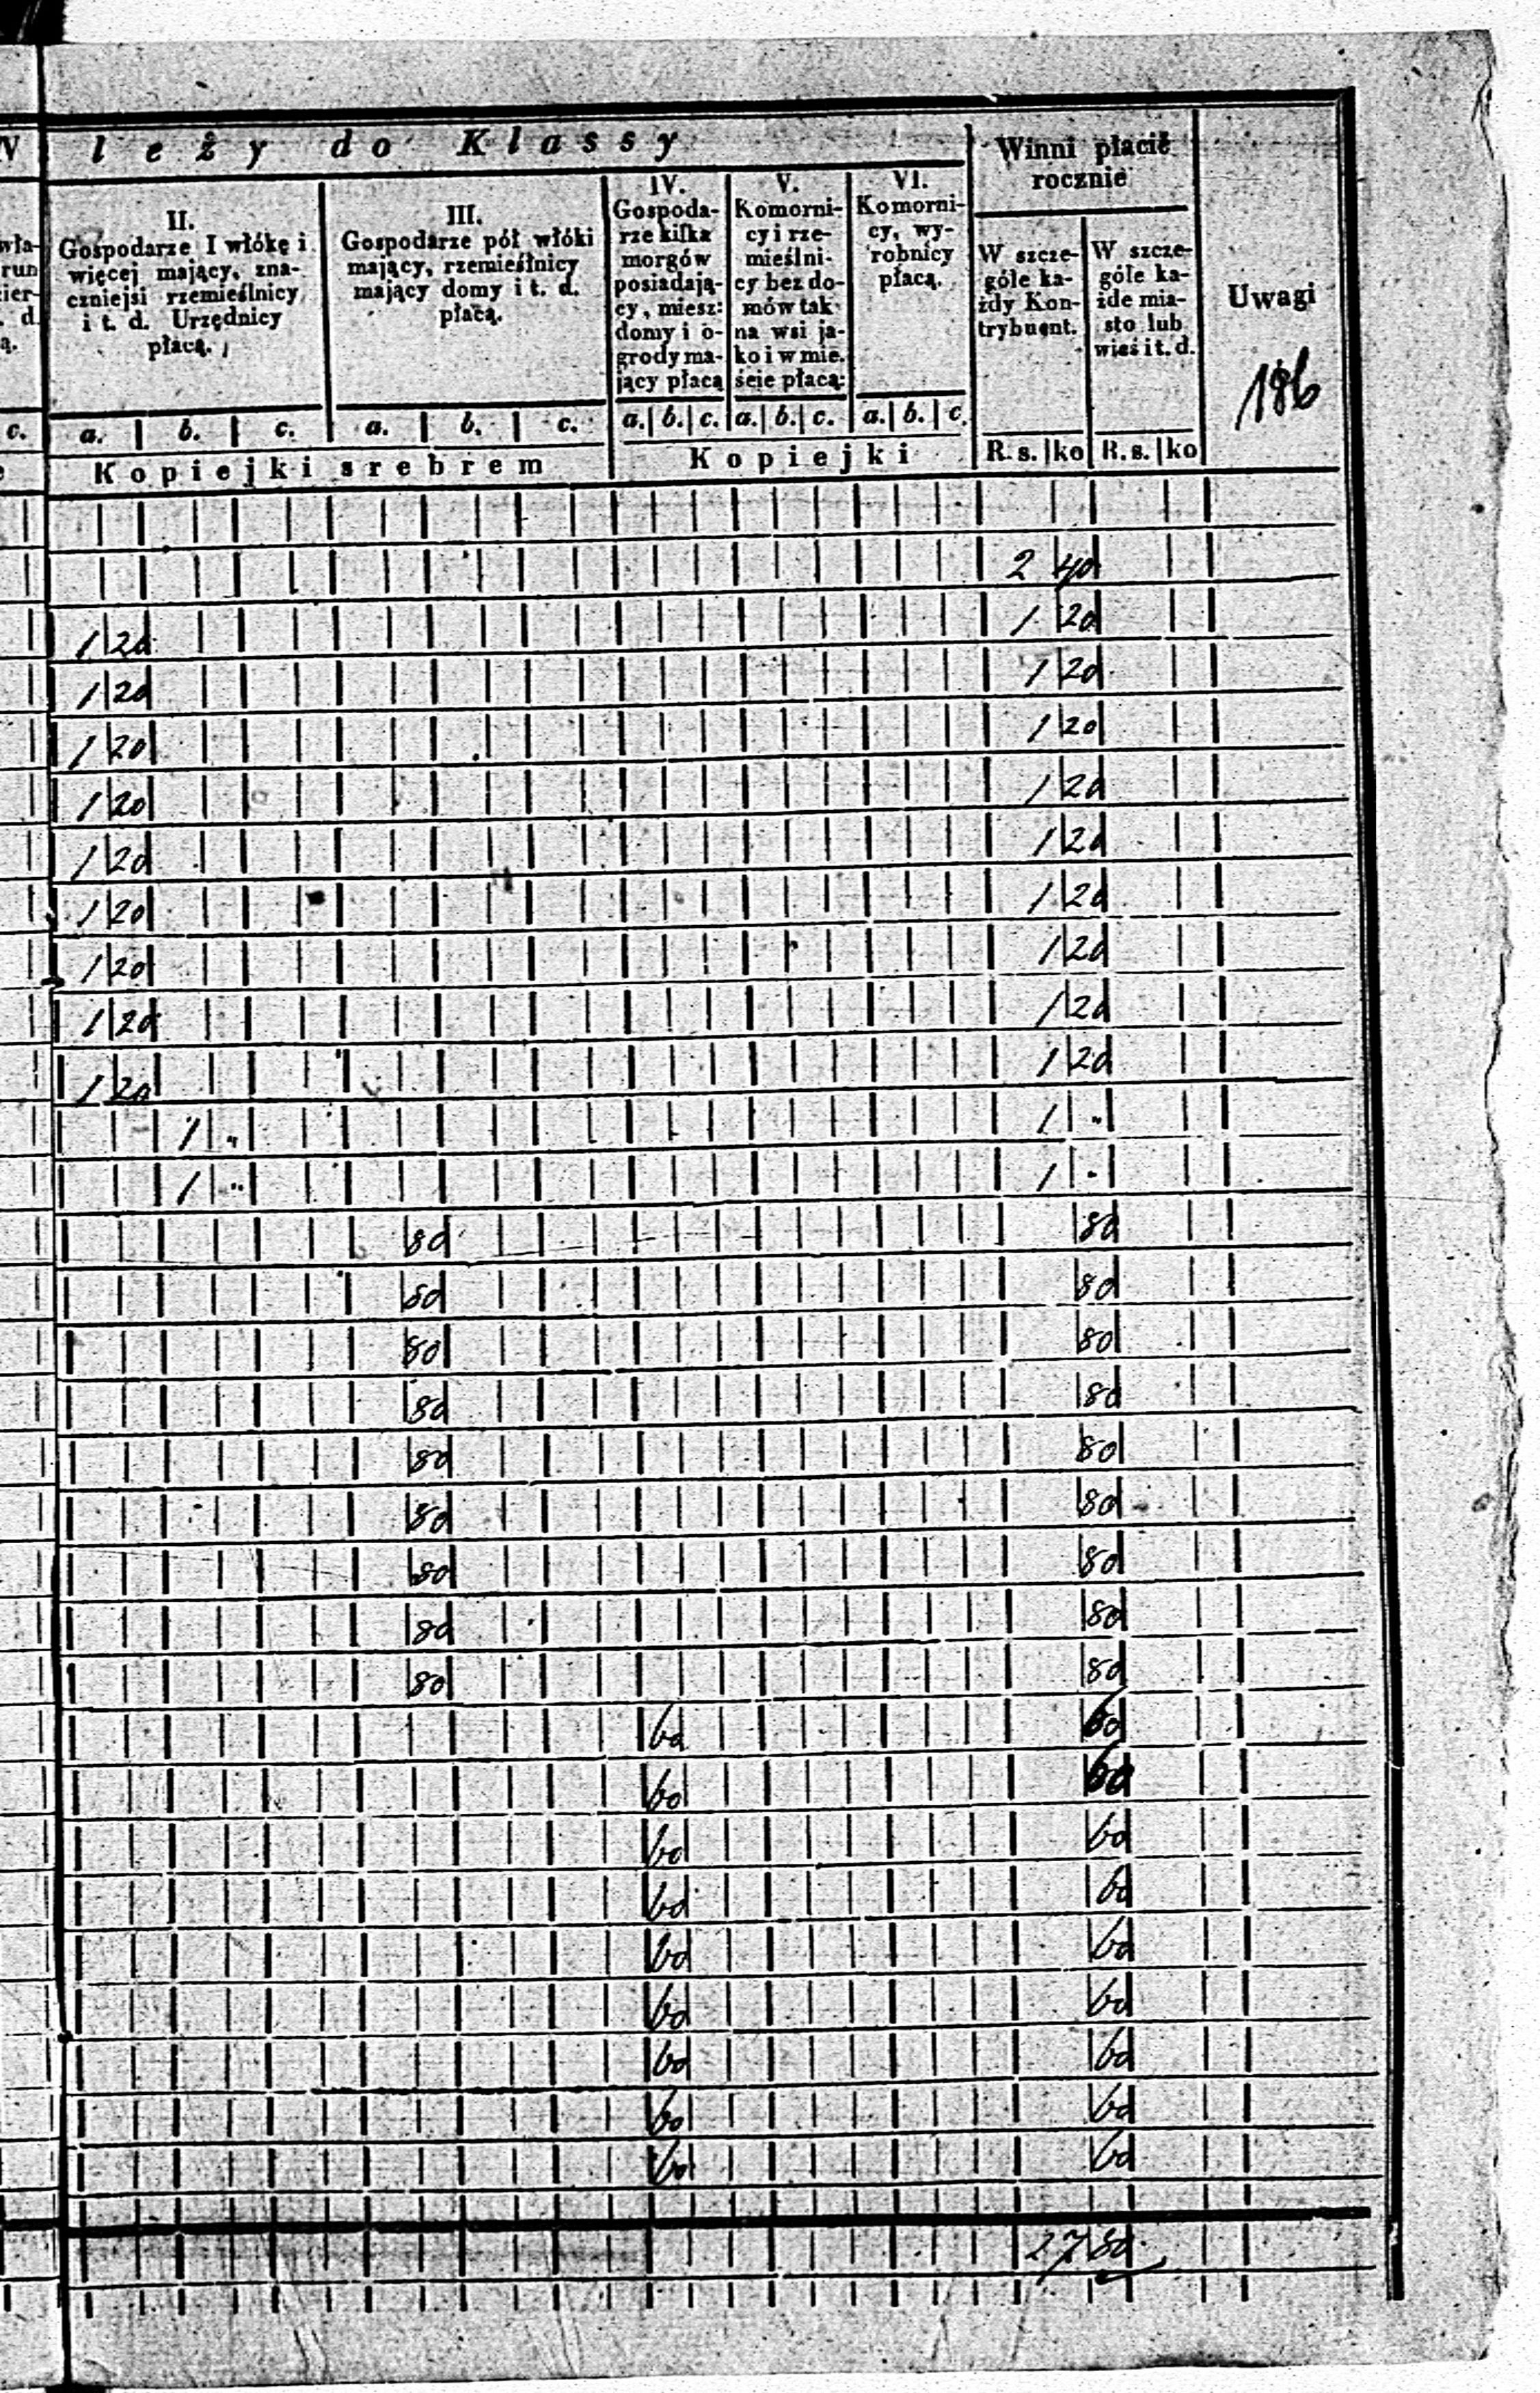 leży do Klassy
Winni płacić
rocznie
Uwagi
186
II.
Gospodarze I włókę i
więcej mający, zna-
czniejsi rzemieślnicy
i t. d. Urzędnicy
płacą.
III.
Gospodarze pół włóki
mający, rzemieślnicy
mający domy i t. d.
płacą.
IV.
Gospoda-
rze kilka
morgów
posiadają-
cy, miesz:
domy i o-
grody ma-
jący płacą
V.
Komorni-
cy i rze-
mieślni-
cy bez do-
mów tak
na wsi ja-
ko i w mie.
ście płacą:
VI.
Komorni-
cy, wy-
robnicy
płacą.
W szcze-
góle ka-
żdy Kon-
trybuent.
W szcze-
góle ka-
żde mia-
sto lub
wieś i t. d.
c. a. b. c. a. b. c. a. b. c. a. b. c. a. b. c.
Kopiejki srebrem Kopiejki R. s. ko R. s. ko
2 40
1 20 1 20
1 20 1 20
1 20 1 20
1 20 1 20
1 20 1 20
1 20 1 20
1 20 1 20
1 20 1 20
1 20 1 20
1 " 1 "
1 " 1 "
80 80
80 80
80 80
80 80
80 80
80 80
80 80
80 80
80 80
60 60
60 60
60 60
60 60
60 60
60 60
60 60
60 60
60 60
27 80